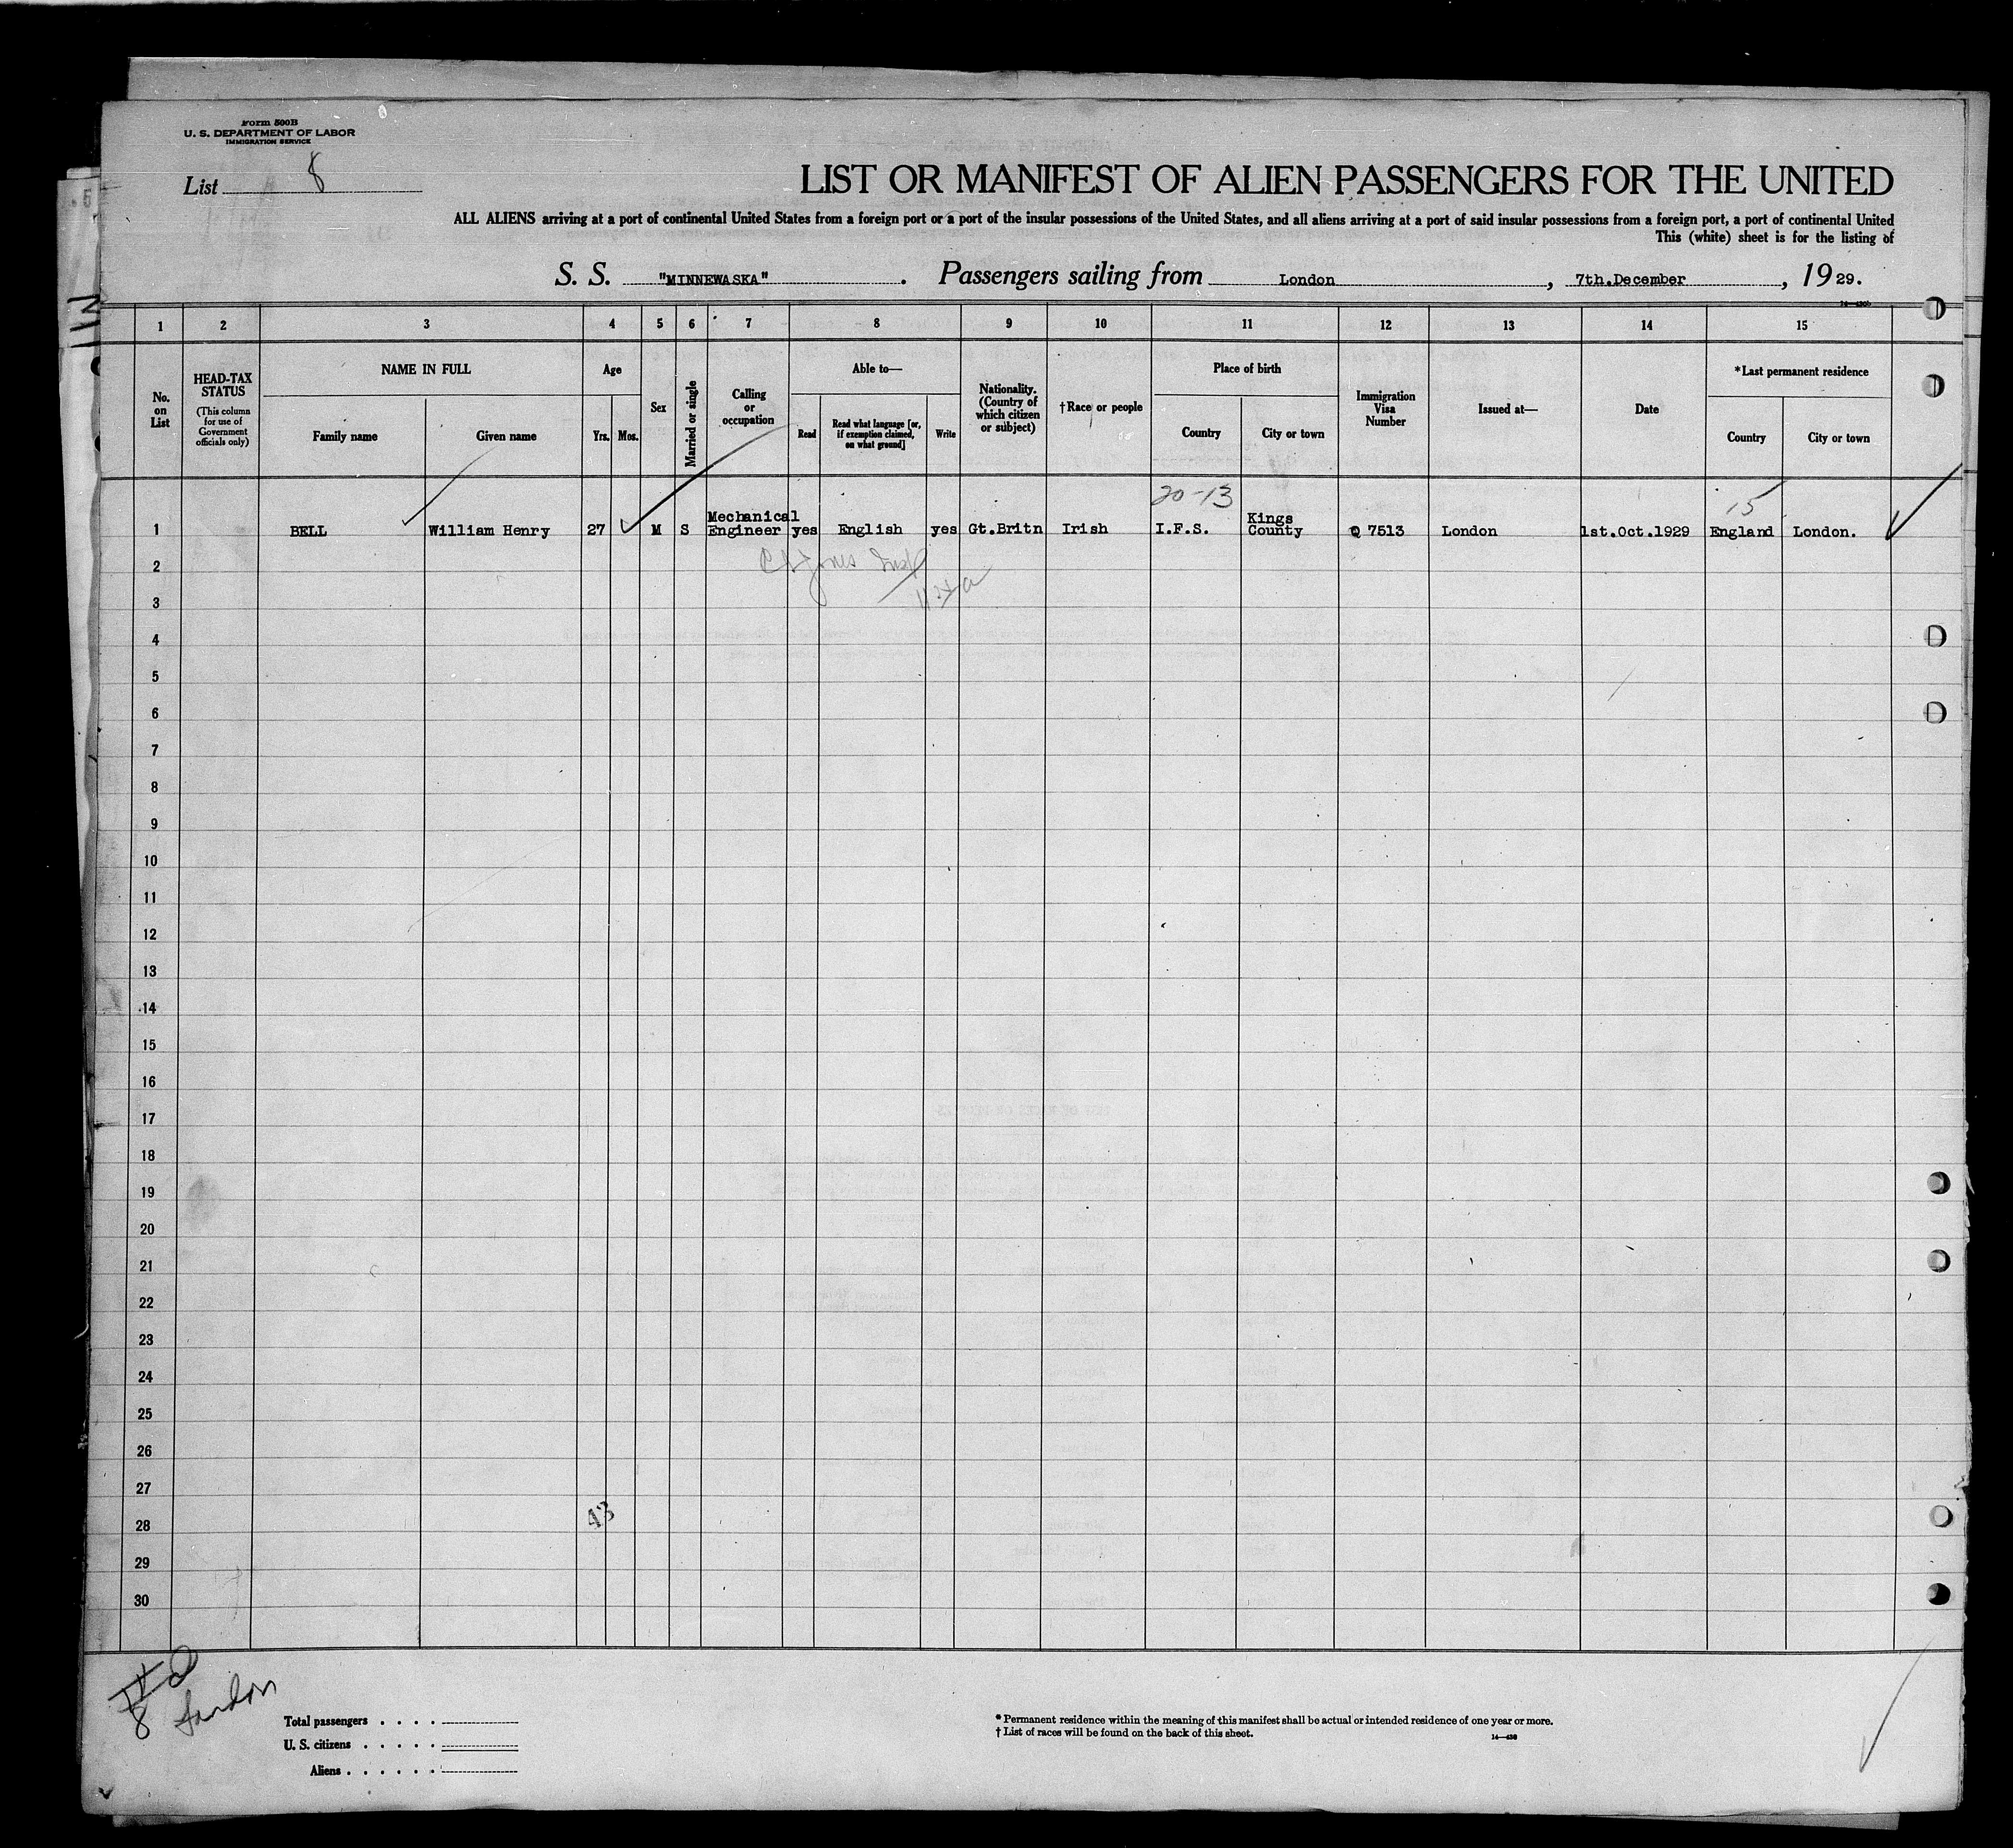 Form 500B
U. S. DEPARTMENT OF LABOR
IMMIGRATION SERVICE
List 8
LIST OR MANIFEST OF ALIEN PASSENGERS FOR THE UNITED
ALL ALIENS arriving at a port of continental United States from a foreign port or a port of the insular possessions of the United States, and all aliens arriving at a port of said insular possessions from a foreign port, a port of continental United
This (white) sheet is for the listing of
S. S. "MINNEWASKA". Passengers sailing from London, 7th.December, 1929.
1 2 3 4 5 6 7 8 9 10 11 12 13 14 15
No. on List
HEAD-TAX STATUS
(This column for use of Government officials only)
NAME IN FULL
Family name
Given name
Age
Yrs. Mos.
Sex
Married or single
Calling or occupation
Able to—
Read
Read what language [or, if exemption claimed, on what ground]
Write
Nationality. (Country of which citizen or subject)
†Race or people
Place of birth
Country
City or town
Immigration Visa Number
Issued at—
Date
*Last permanent residence
Country
City or town
20-13
15
1 BELL William Henry 27 M S Mechanical Engineer yes English yes Gt.Britn Irish I.F.S. Kings County Q 7513 London 1st.Oct.1929 England London.
2
3
4
5
6
7
8
9
10
11
12
13
14
15
16
17
18
19
20
21
22
23
24
25
26
27
43
28
29
30
8 London
Total passengers . . . .
U. S. citizens . . . . .
Aliens . . . . . .
* Permanent residence within the meaning of this manifest shall be actual or intended residence of one year or more.
† List of races will be found on the back of this sheet.
14—430